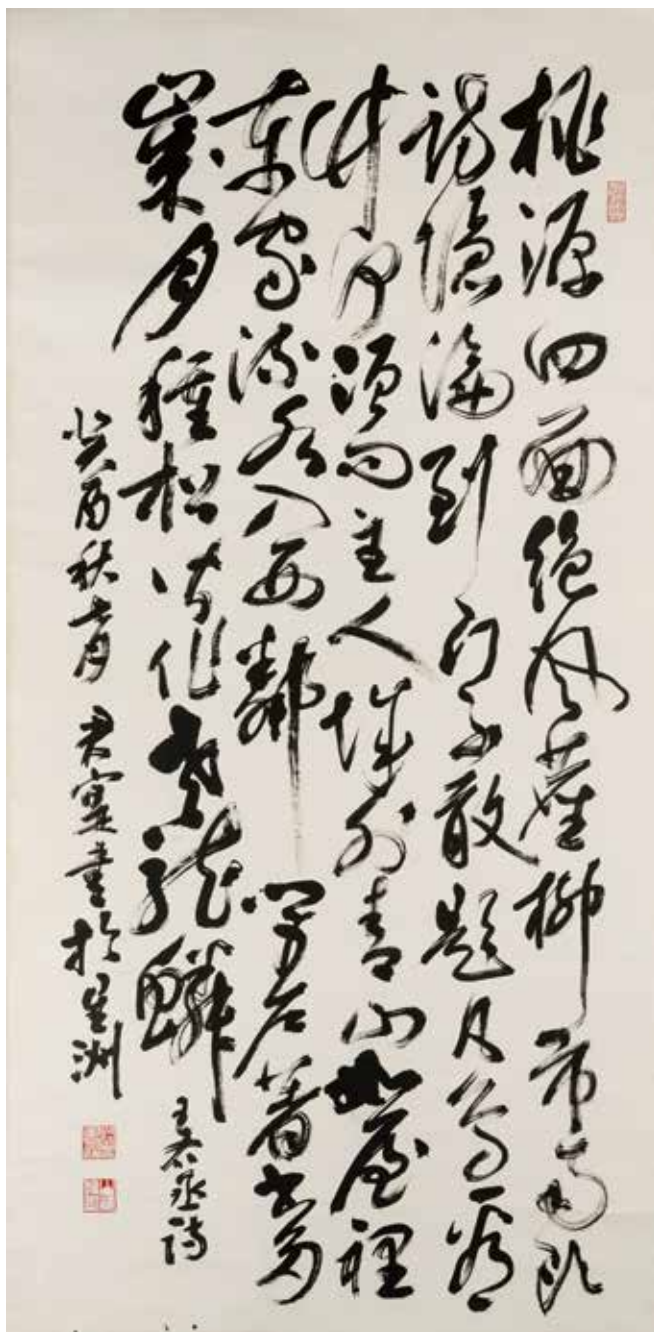 桃源四面絕風塵柳市南頭
訪隱淪到門不敢題凡鳥看
竹何須問主人城外青山如屋裡
東家流水入西鄰閉戶著書多
歲月種松皆作老龍鱗 王右丞詩
癸酉秋七月 君寔書於星洲